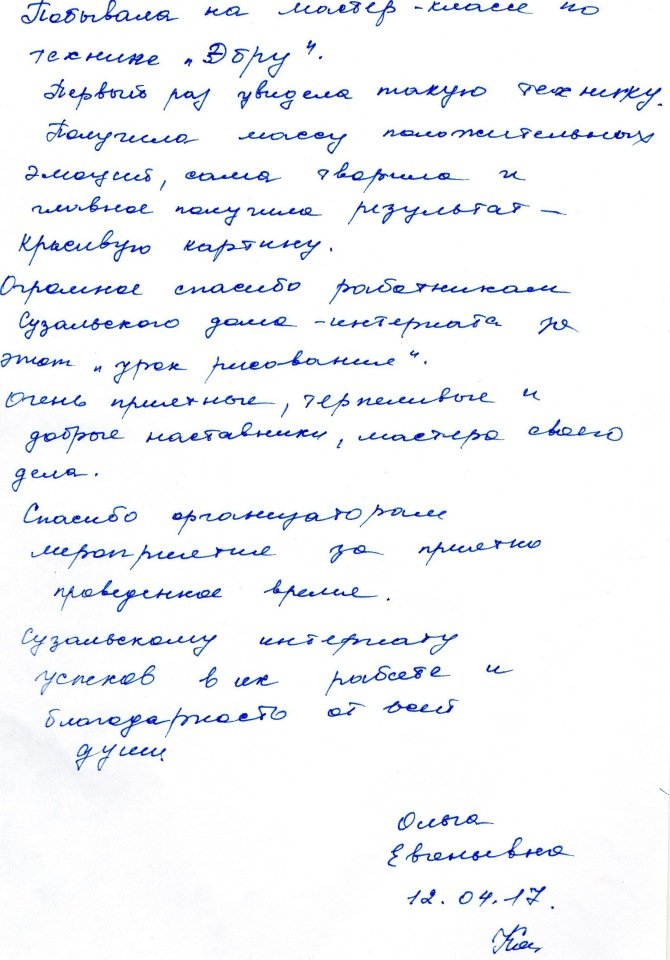 Побывала на мастер-классе по
технике „Эбру".
Первый раз увидела такую технику.
Получила массу положительных
эмоций, сама творила и
главное получила результат –
красивую картину.
Огромное спасибо работникам
Суздальского дома-интерната за
этот „урок рисования".
Очень приятные, терпеливые и
добрые наставники, мастера своего
дела.
Спасибо организаторам
мероприятия за приятно
проведенное время.
Сузальскому интернату
успехов в их работе и
благодарность от всей
души
Ольга
Евгеньевна
12.04.17.